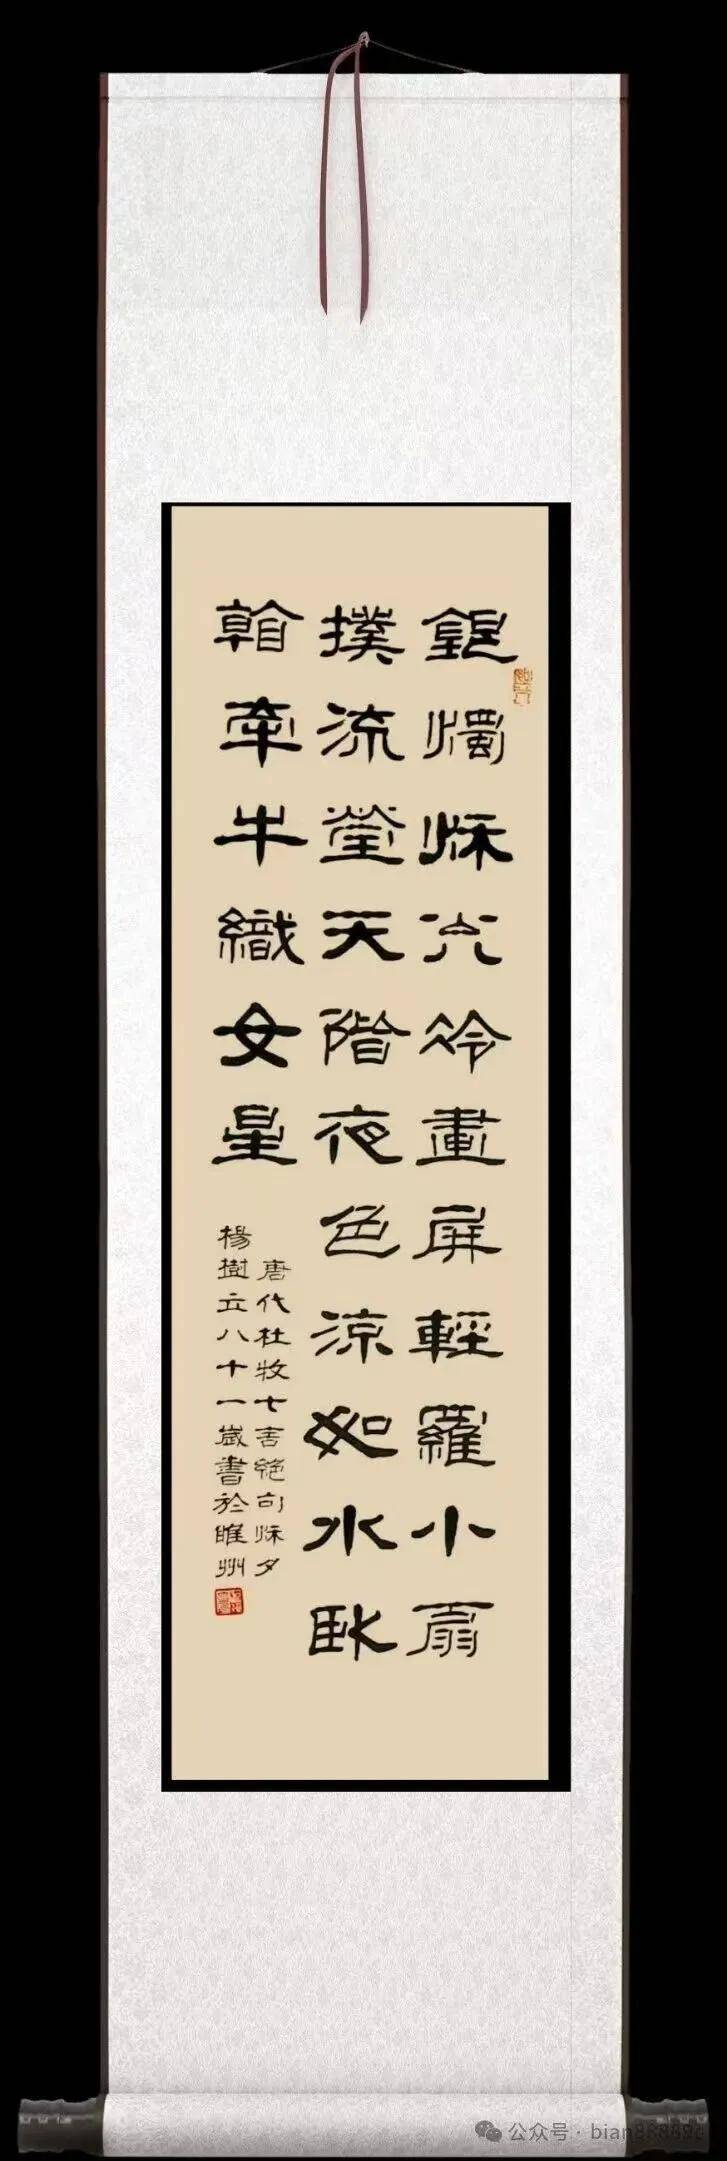 銀燭秋光冷畫屏輕羅小扇
撲流瑩天階夜色涼如水臥
看牽牛織女星
唐代杜牧七言絕句秋夕
楊樹立八十一歲書於睢州
公众号 ·